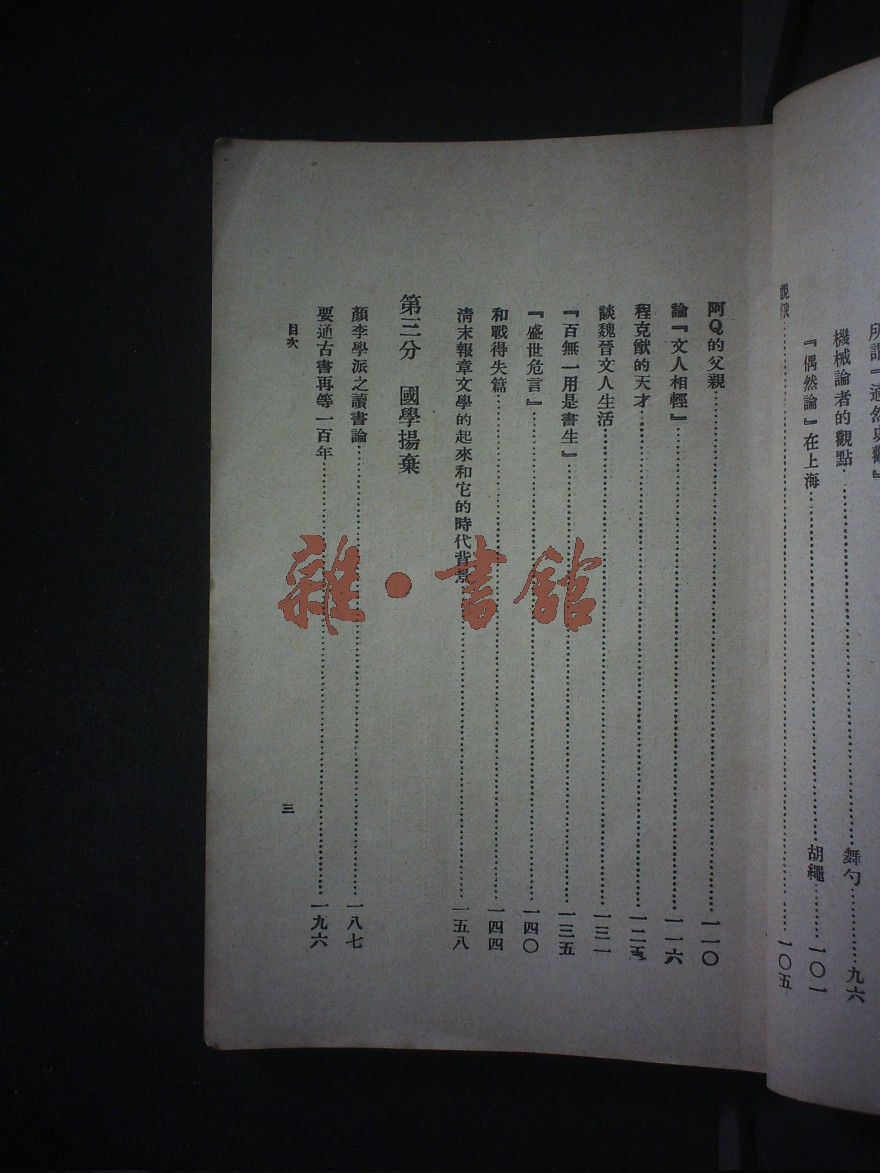 機械論者的觀點……舞勺……九六
『偶然論』在上海……胡繩……一〇一
……一〇五
阿Q的父親……一一〇
論『文人相輕』……一一六
程克猷的天才……一二五
談魏晉文人生活……一三一
『百無一用是書生』……一三五
『盛世危言』……一四〇
和戰得失篇……一四四
清末報章文學的起來和它的時代背景……一五八
第三分　國學揚棄
顏李學派之讀書論……一八七
要通古書再等一百年……一九六
目次
三
雜·書館